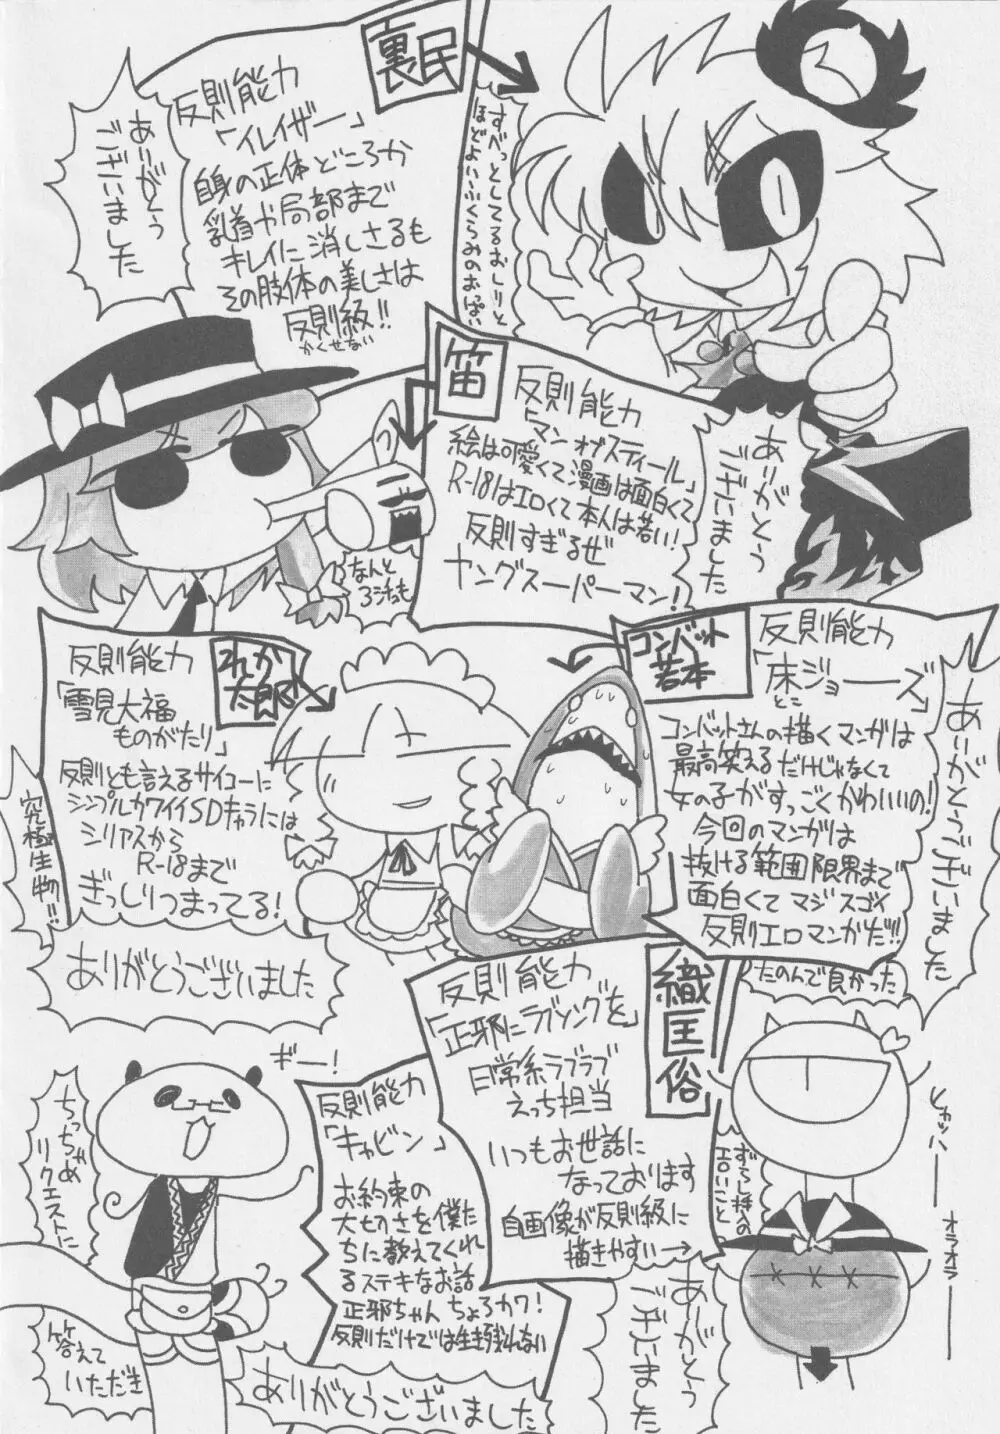 裏民
反則能力
「イレイザー」
自身の正体どころか
乳首や局部まで
キレイに消しさるも
その肢体の美しさは
反則級!!
かくせない
ありがとう
ございました
すべっとしてるおしりと
ほどよいふくらみのおぱい
笛
反則能力
「マンオブスティール」
絵は可愛くて漫画は面白くて
R-18はエロくて本人は若い!
反則すぎるぜ
ヤングスーパーマン!
ありがとう
ございました
なんと
コンバット
若本
反則能力
「床ジョーーズ」
とこ
コンバットさんの描くマンガは
最高笑えるだけじゃなくて
女の子がすっごくかわいいの!
今回のマンガは
抜ける範囲限界まで
面白くてマジスゴイ
反則エロマンガだ!!
ありがとうございました
たのんで良かった
それか
太郎
反則能力
「雪見大福
ものがたり」
反則とも言えるサイコーに
シンプルカワイイSDキャラには
シリアスから
R-18まで
ぎっしりつまってる!
究極生物!!
ありがとうございました
織匡俗
反則能力
「正邪にラブソングを」
日常系ラブラブ
えっち担当
いつもお世話に
なっております
自画像が反則級に
描きやすい→
ありがとう
ございました
ずらし挿入の
エロいこと
ヒャッハー
オラオラ
ギー!
反則能力
「キャビン」
お約束の
大切さを僕た
ちに教えてくれ
るステキなお話
正邪ちゃんちょろカワ!
反則だけでは生き残れない
ありがとうございました
ちっちゃめ
リクエストに
答えて
いただき